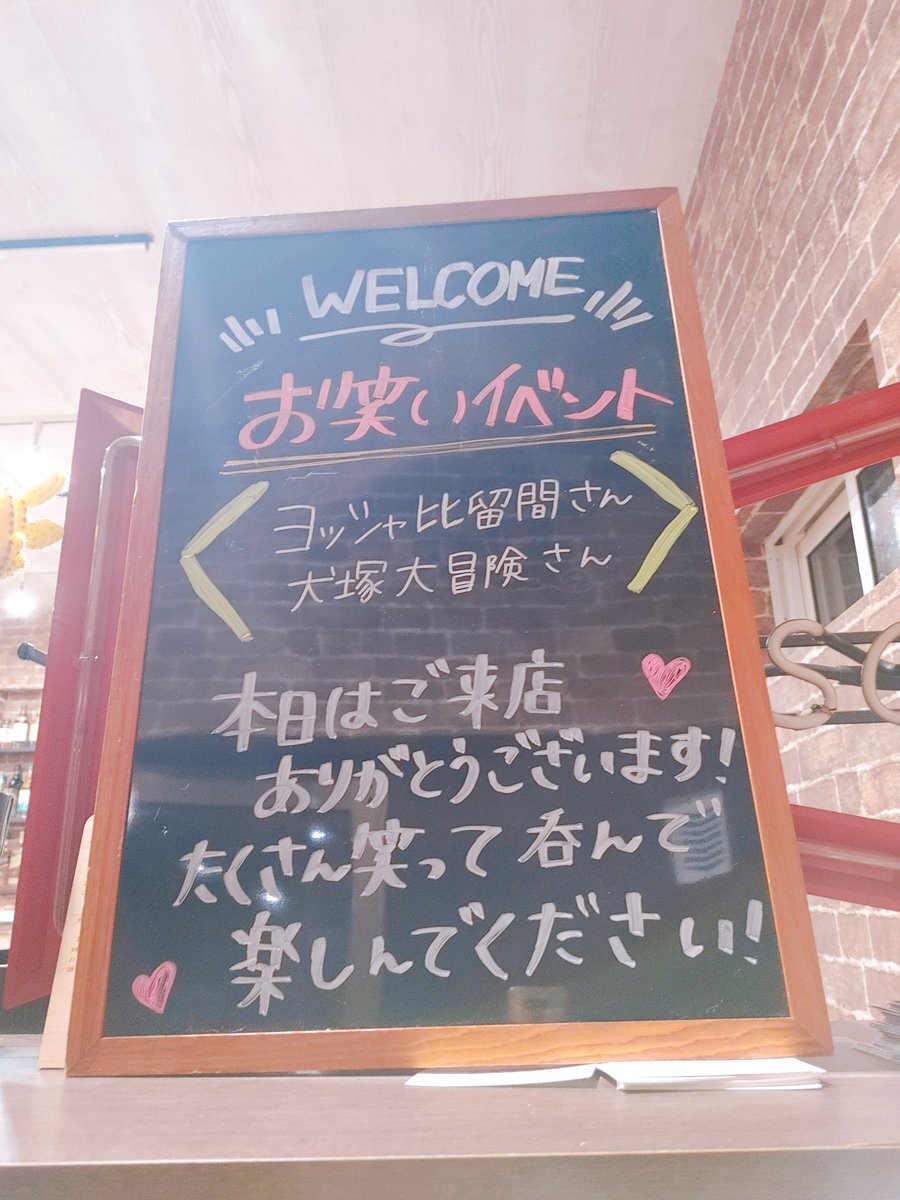 WELCOME
お笑いイベント
ヨッシャ比留間さん
犬塚大冒険さん
本日はご来店
ありがとうございます!
たくさん笑って呑んで
楽しんでください!